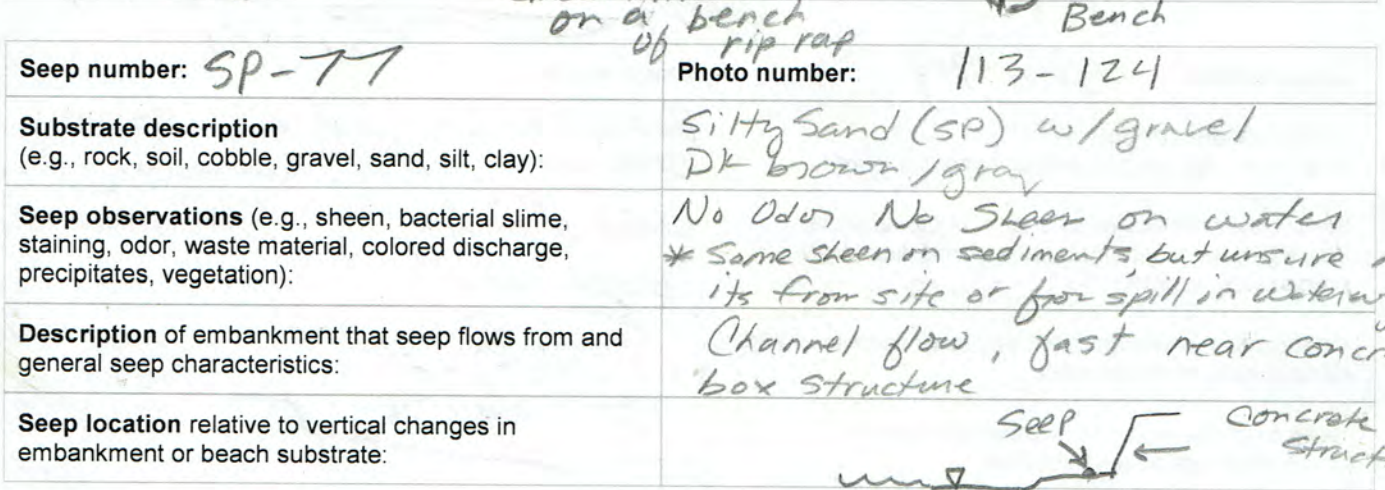 on a bench
of rip rap
Bench
Seep number: SP-77
Photo number: 113-124
Substrate description
(e.g., rock, soil, cobble, gravel, sand, silt, clay):
Silty Sand (SP) w/gravel
DK brown/gray
Seep observations (e.g., sheen, bacterial slime,
staining, odor, waste material, colored discharge,
precipitates, vegetation):
No Odor No Sheen on water
* Some sheen on sediments, but unsure
its from site or from spill in
Description of embankment that seep flows from and
general seep characteristics:
Channel flow, fast near
box structure
Seep location relative to vertical changes in
embankment or beach substrate:
Seep
Concrete